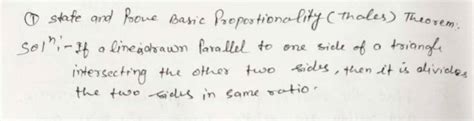 ① state and Prove Basic Proportionality (Thales) Theorem.
Solⁿ:- If a line is drawn Parallel to one side of a triangle
intersecting the other two sides, then it is divides
the two sides in same ratio.